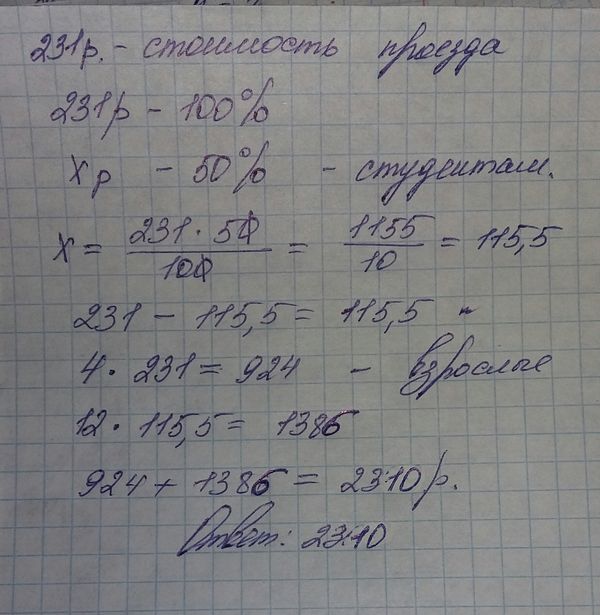 231р. - стоимость проезда
231р - 100%
Xр - 50% - студентам.
X = 231 · 50 / 100 = 1155 / 10 = 115,5
231 - 115,5 = 115,5
4 · 231 = 924 - взрослые
12 · 115,5 = 1386
924 + 1386 = 2310р.
Ответ: 2310